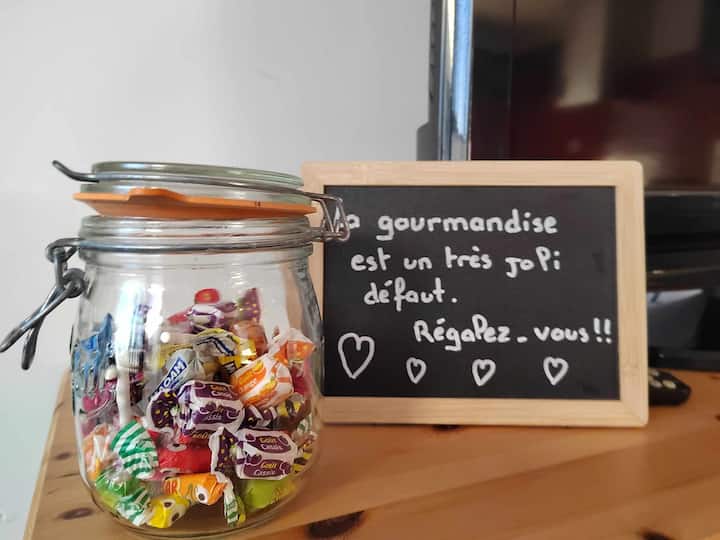 La gourmandise
est un très joli
défaut.
Régalez-vous!!
Goût
Cassis
Goût
Cassis